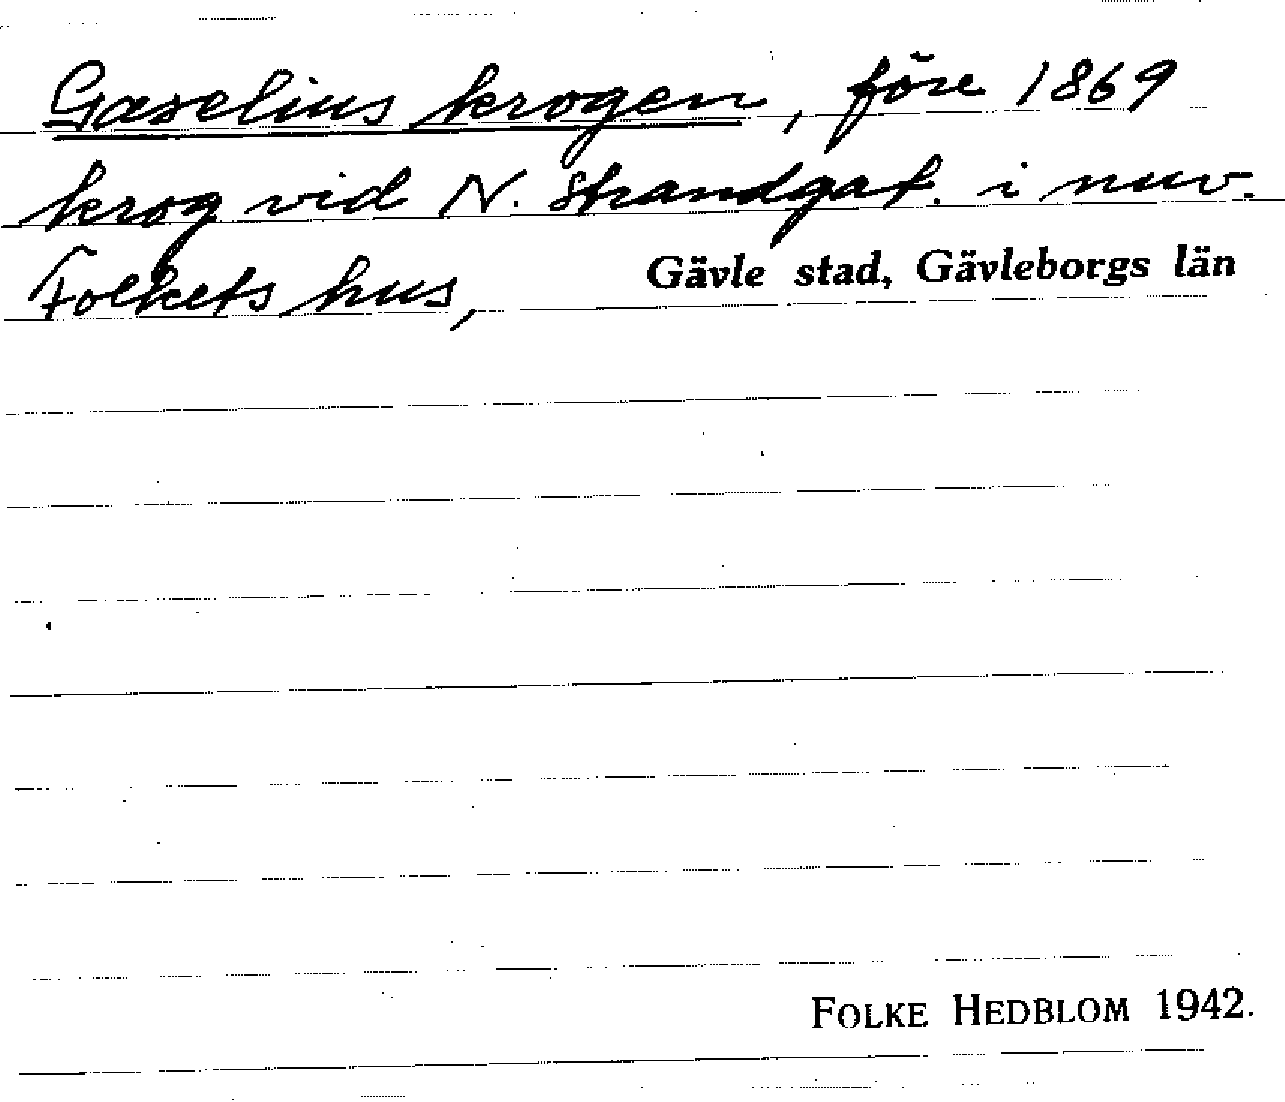 Gaselius krogen, före 1869
krog vid N. Strandgat. i nuv.
Folkets hus, Gävle stad, Gävleborgs län
FOLKE HEDBLOM 1942.